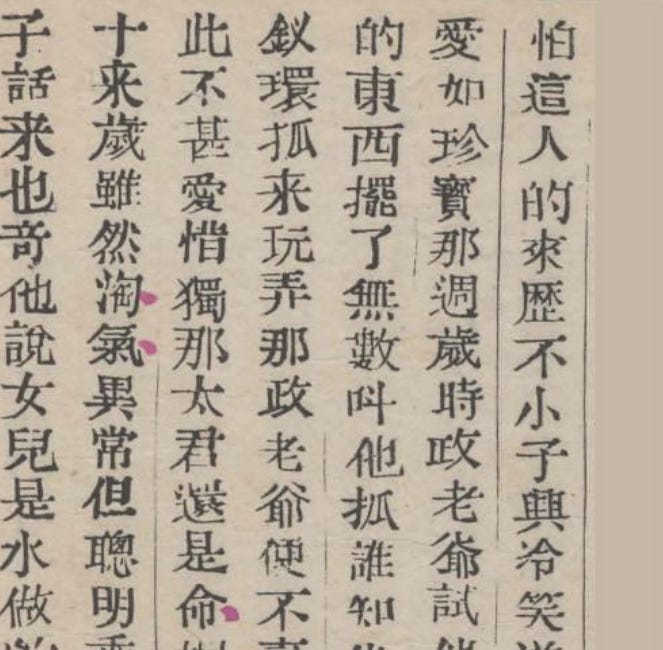 怕這人的來歷不小子興冷笑
愛如珍寳那週歲時政老爺試
的東西擺了無數呌他抓誰知
釵環抓来玩弄那政老爺便不
此不甚愛惜獨那太君還是命
十来歲雖然淘氣異常但聰明
子話来也奇他說女兒是水做